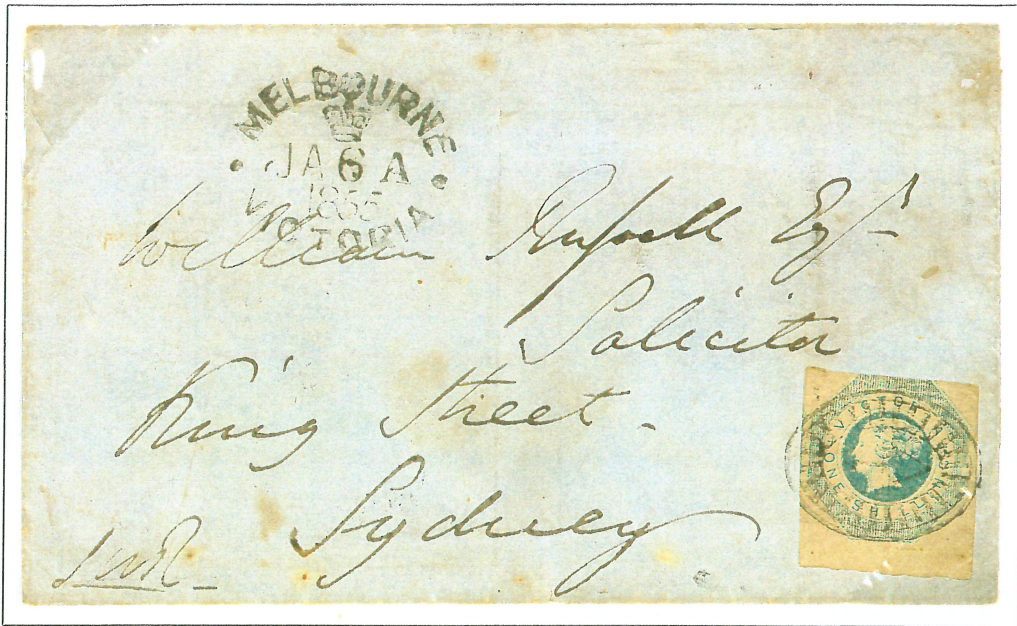 MELBOURNE
JA 6 A
1855
VICTORIA
William Russell Esqr
Solicitor
King Street
Sydney
VICTORIA
ONE SHILLING